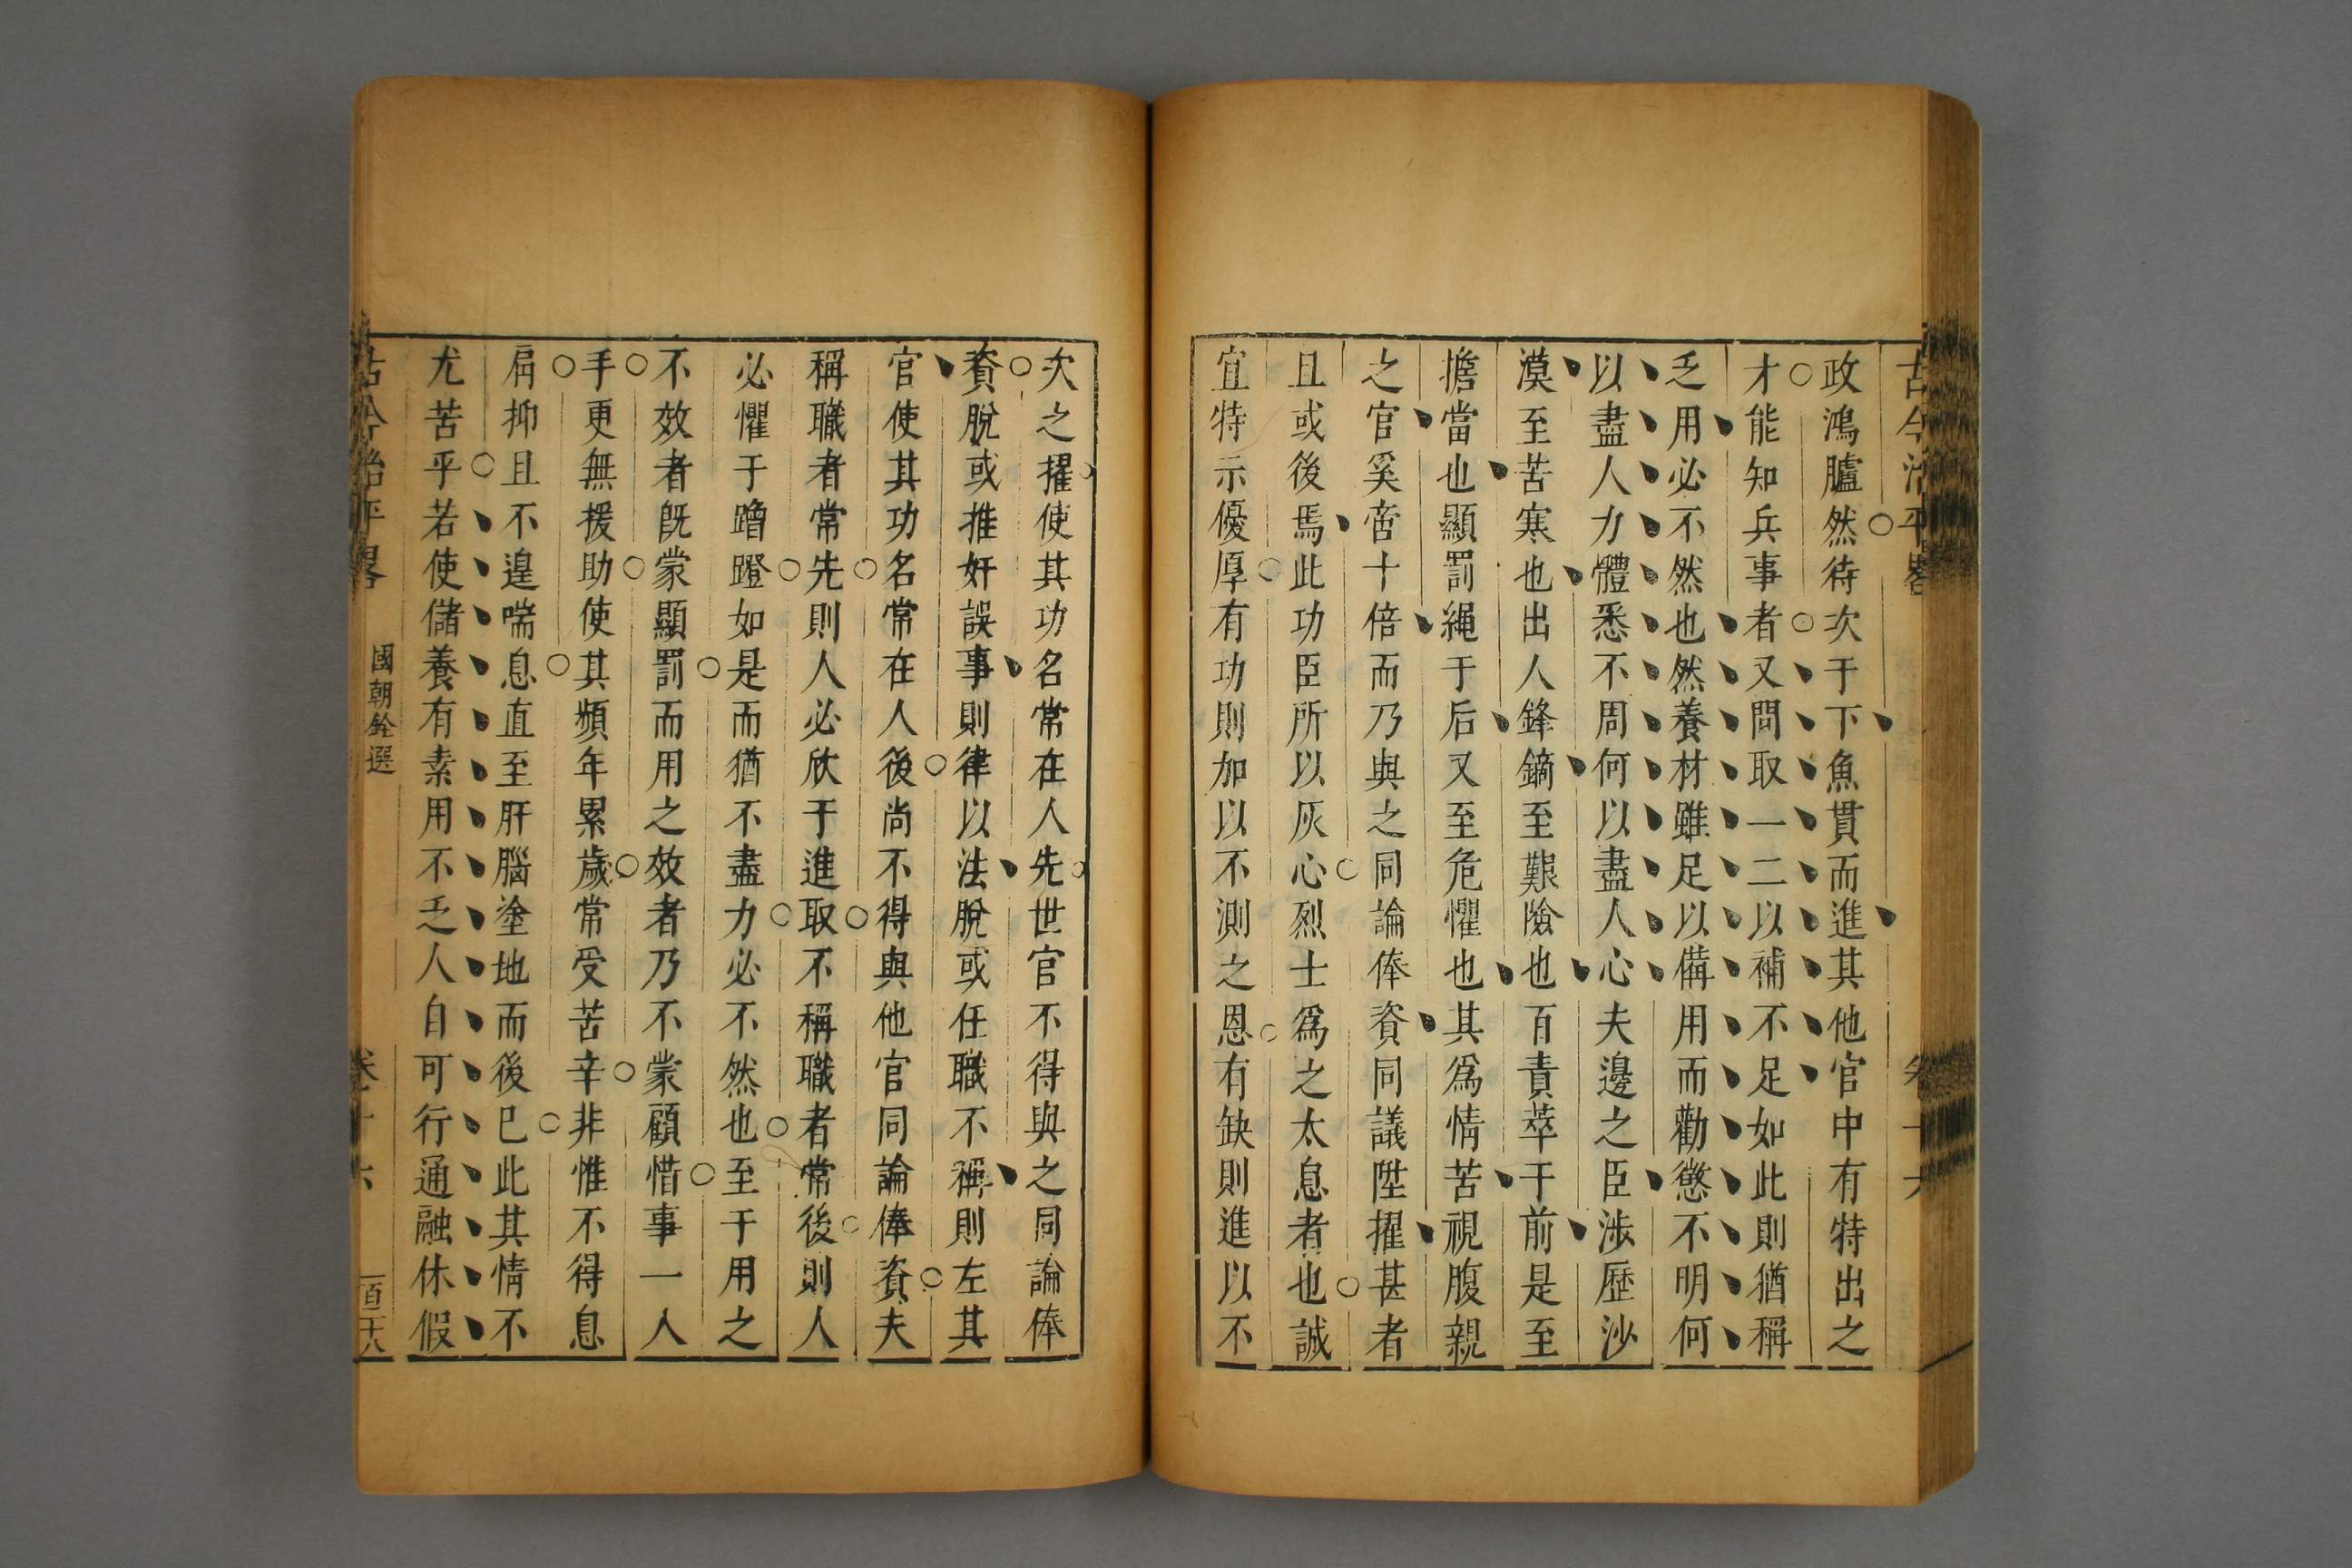 古今治平畧 卷十六
政鴻臚然待次于下魚貫而進其他官中有特出之
才能知兵事者又問取一二以補不足如此則猶稱
乏用必不然也然養材雖足以備用而勸懲不明何
以盡人力體悉不周何以盡人心夫邊之臣渉歷沙
漠至苦寒也出人鋒鏑至艱險也百責萃于前是至
擔當也顯罰繩于后又至危懼也其爲情苦視腹親
之官奚啻十倍而乃與之同論俸資同議陞擢甚者
且或後焉此功臣所以灰心烈士爲之太息者也誠
宜特示優厚有功則加以不測之恩有缺則進以不
次之擢使其功名常在人先世官不得與之同論俸
資脫或推奸誤事則律以法脫或任職不稱則左其
官使其功名常在人後尚不得與他官同論俸資夫
稱職者常先則人必欣于進取不稱職者常後則人
必懼于蹭蹬如是而猶不盡力必不然也至于用之
不效者既蒙顯罰而用之效者乃不蒙顧惜事一人
手更無援助使其頻年累歲常受苦辛非惟不得息
肩抑且不遑喘息直至肝腦塗地而後巳此其情不
尤苦乎若使儲養有素用不乏人自可行通融休假
古今治平畧 國朝銓選 卷十六 百二十八